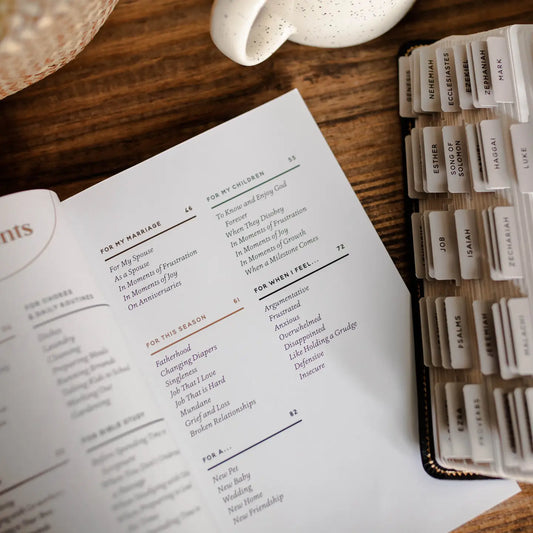 nts
FOR CHORES
& DAILY ROUTINES
Dishes
Laundry
Cleaning
Preparing Meals
Running Errands
Taking Kids to School
Working Out
Gardening
FOR BIBLE STUDY
Before Spending Time in
Scripture
FOR MY MARRIAGE 46
For My Spouse
As a Spouse
In Moments of Frustration
In Moments of Joy
On Anniversaries
FOR THIS SEASON 61
Fatherhood
Changing Diapers
Singleness
Job That I Love
Job That is Hard
Mundane
Grief and Loss
Broken Relationships
FOR A... 82
New Pet
New Baby
Wedding
New Home
New Friendship
FOR MY CHILDREN 55
To Know and Enjoy God
Forever
When They Disobey
In Moments of Frustration
In Moments of Joy
In Moments of Growth
When a Milestone Comes
FOR WHEN I FEEL... 72
Argumentative
Frustrated
Anxious
Overwhelmed
Disappointed
Like Holding a Grudge
Defensive
Insecure
GENESIS
NEHEMIAH
ECCLESIASTES
EZEKIEL
ZEPHANIAH
MARK
ESTHER
SONG OF
SOLOMON
HAGGAI
LUKE
JOB
ISAIAH
ZECHARIAH
PSALMS
JEREMIAH
MALACHI
EZRA
PROVERBS